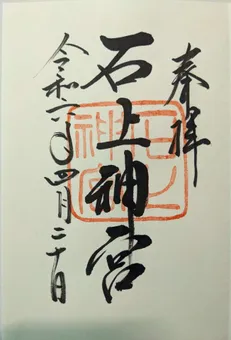 奉拝
石上神宮
石上
神宮
令和六年四月二十日